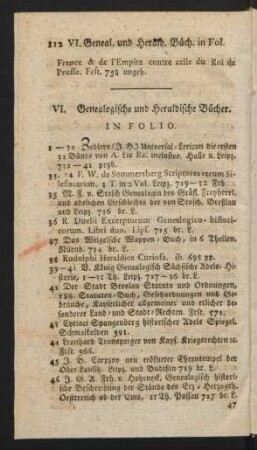 112 VI. Geneal. und Herald. Büch. in Fol.
France & de l'Empire contre celle du Roi de
Prusse. Frft. 758 ungeb.
VI. Genealogische und Heraldische Bücher.
IN FOLIO.
1—31 Zedlers (J. H.) Universal-Lexicon die ersten
31 Bände von A. bis Ri. inclusive. Halle u. Leipz.
732—41 prgb.
33. 34 F. W. de Sommersberg Scriptores rerum Si-
lesiacarum. 3 T. in 2 Vol. Leipz. 729—32 Frb
35 M. F. v. Stosch Genealogia des Gräfl. Freyherrl.
und Adelichen Geschlechts der von Stosch. Breßlau
und Leipz. 736 br. L.
36 R. Duelii Excerptorum Genealogico-histori-
corum. Libri duo. Lips. 725 br. L.
37 Das Weigelsche Wappen-Buch, in 6 Theilen.
Nürnb. 734 br. L.
38 Rudolphi Heraldica Curiosa. ib. 698 pp.
39—41 V. König Genealogisch Sächsische Adels-Hi-
storie, 1—3r Th. Leipz. 727—36 br. L.
42 Der Stadt Breslau Statuta und Ordnungen,
Statuten-Buch, Gesetzordnungen und Ge-
bräuche, Kayserlicher allgemeiner und etlicher be-
sonderer Land- und Stadt-Rechten. Frft. 572.
43 Cyriaci Spangenberg historischer Adels Spiegel.
Schmalkalden 591.
44 Leonhard Fronsperger von Kays. Kriegsrechten 2c.
Frft. 566.
45 J. B. Carpzov neu eröfneter Ehrentempel der
Ober-Lausitz. Leipz. und Budißin 719 br. L.
46 J. G. A. Frh. v. Hoheneck, Genealogisch histori-
sche Beschreibung der Stände des Erz-Herzogth.
Oestrreich ob der Ens, 1r Th. Passau 727 br. L.
47